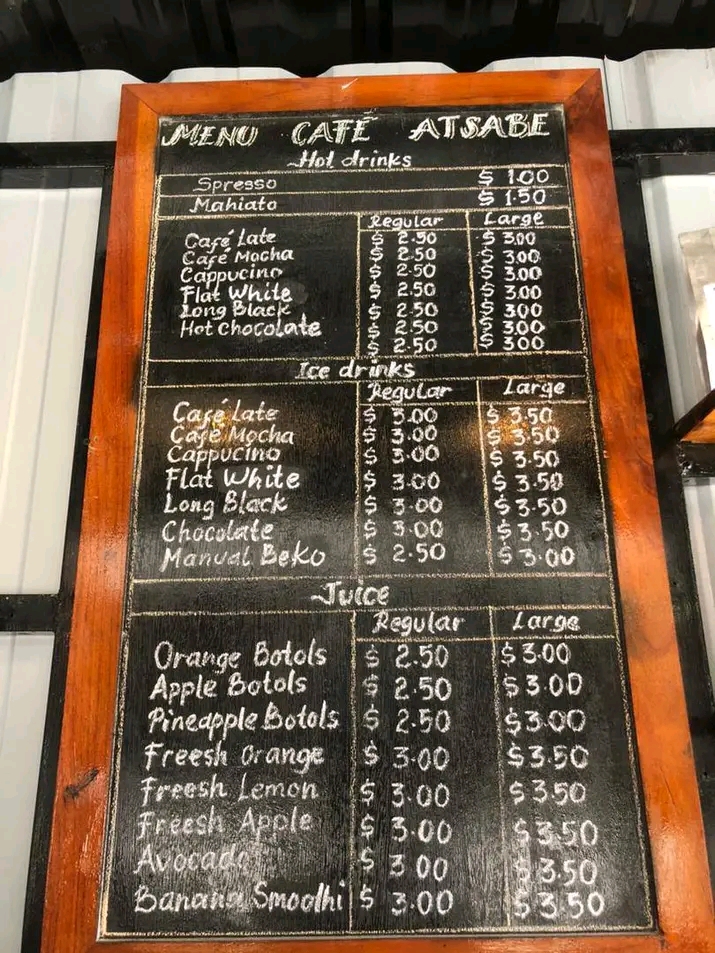 MENU CAFÉ ATSABE
Hot drinks
Spresso $ 1.00
Mahiato $ 1.50
Regular Large
Café Late $ 2.50 $ 3.00
Café Mocha $ 2.50 $ 3.00
Cappucino $ 2.50 $ 3.00
Flat White $ 2.50 $ 3.00
Long Black $ 2.50 $ 300
Hot chocolate $ 2.50 $ 3.00
$ 2.50 $ 300
Ice drinks
Regular Large
Café Late $ 3.00 $ 3.50
Cafe Mocha $ 3.00 $ 3.50
Cappucino $ 3.00 $ 3.50
Flat White $ 3.00 $ 3.50
Long Black $ 3.00 $ 3.50
Chocolate $ 3.00 $ 3.50
Manual Beko $ 2.50 $ 3.00
Juice
Regular Large
Orange Botols $ 2.50 $ 3.00
Apple Botols $ 2.50 $ 3.00
Pineapple Botols $ 2.50 $ 3.00
Freesh Orange $ 3.00 $ 3.50
Freesh Lemon $ 3.00 $ 3.50
Freesh Apple $ 3.00 $ 3.50
Avocado $ 3 00 $ 3.50
Banana Smoothi $ 3.00 $ 3.50